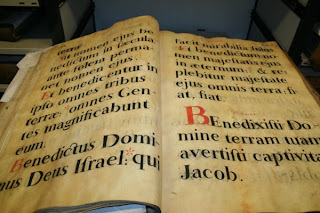 terræ.
nomen ejus be-
ante solem perma-
nomen ejus.
benedicentur in
ipso omnes tribus
terræ: omnes Gen-
tes magnificabunt
eum.
Benedictus Domi-
nus Deus Israel:* qui
facit mirabilia solus.
Et benedictum no-
men majestatis ejus
in æternum: & re-
plebitur majestate
ejus omnis terra: fi-
at, fiat.
Benedixisti Do-
mine terram tuam
avertisti captivita
Jacob.